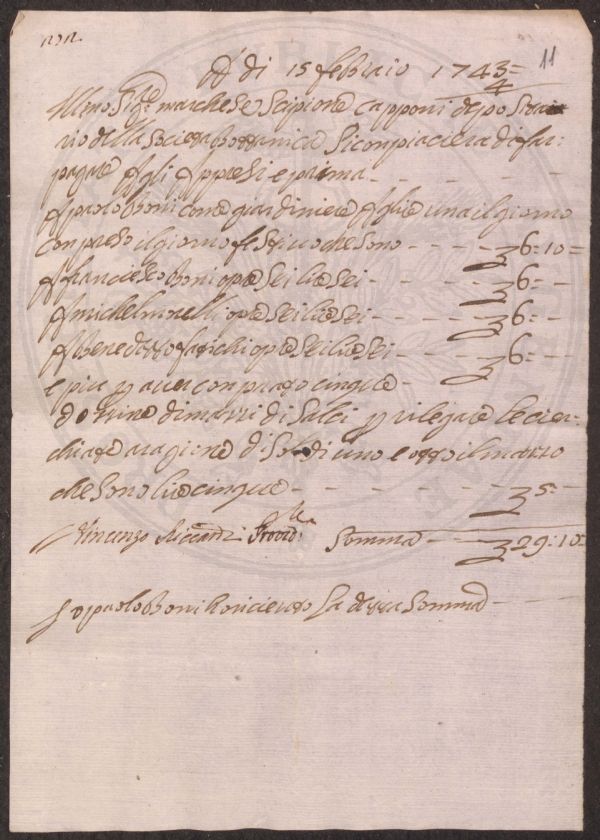 11
A di 15 febbraio 1743
4
Illmo Sigre marchese Scipione Capponi deposita
rio della Societa Bottanica Si conpiaciera di far
pagare Agli Appresi e prima - - -
A paolo Boni come giardiniere A lire una il giorno
conpreso il giorno festivo che sono - - - - 6:10=
A francesco Boni opre sei lire sei - - - - 6=
A michel morelli opre sei lire sei - - - - 6=
A Benedetto fatichi opre sei lire sei - - - - 6=
e piu p aver conprato cinque -
dozzine di mazzi di Salci p rilegare le cier
chiate a ragione di Soldi uno e otto il mazzo
che sono lire cinque - - - - 5=
Vincenzo Riccardi Provid. Somma - - - 29:10=
Io paolo Boni Riricieuto La detta Somma - - -